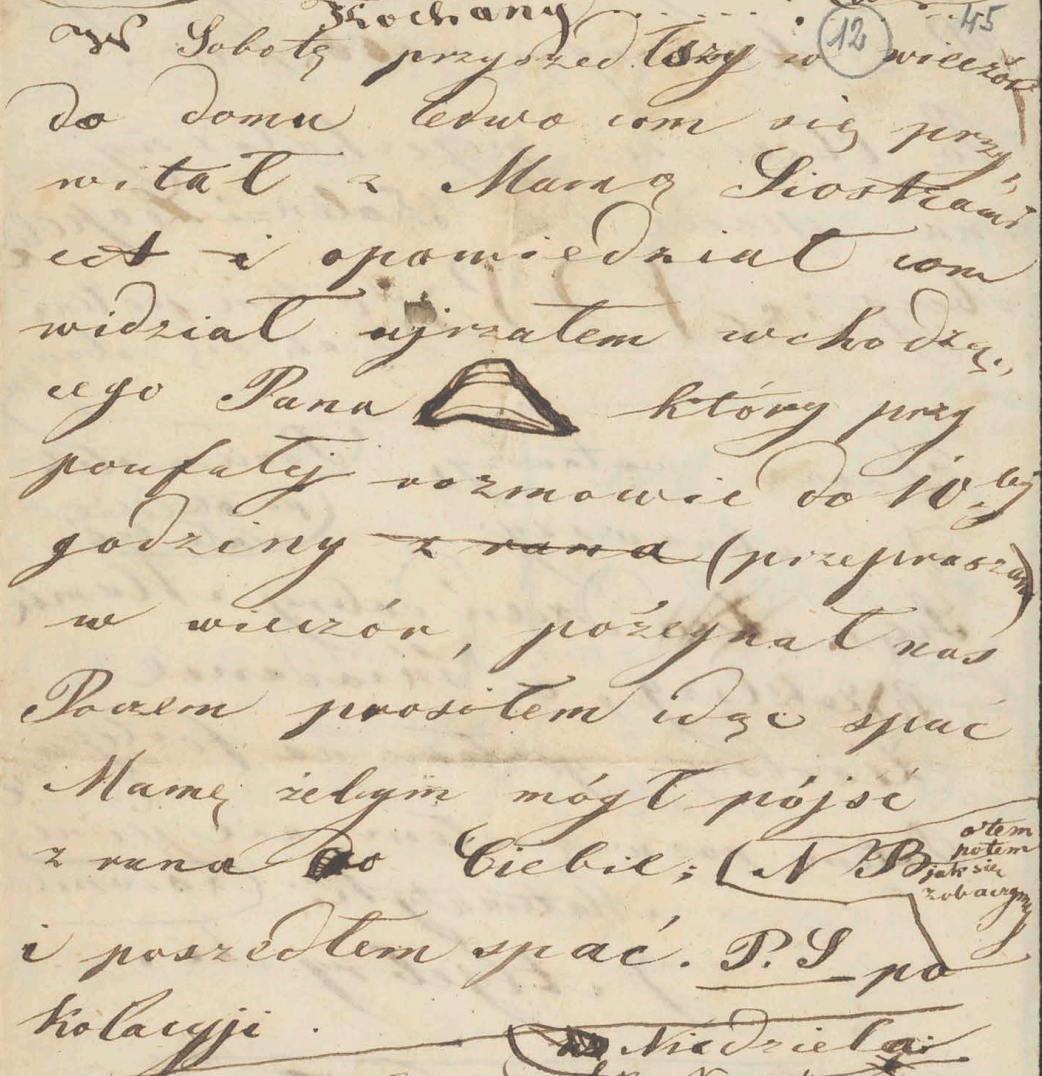 Kochany
12
45
W Sobotę przyszedłszy w wieczór
do domu ledwo com się przy,,
witał z Mamą Siostrami
ect i opowiedział com
widział ujrzałem wchodzą,,
cego Pana który przy
poufałej rozmowie do 10tej
godziny z rana (przepraszam)
w wieczór, pożegnał nas
Poczem prosiłem idąc spać
Mamę żebym mógł pójść
z rana do Ciebie; (NB
o tem
potem
jak się
zobaczymy
i poszedłem spać. P.S po
kolacyji.
Niedziela: